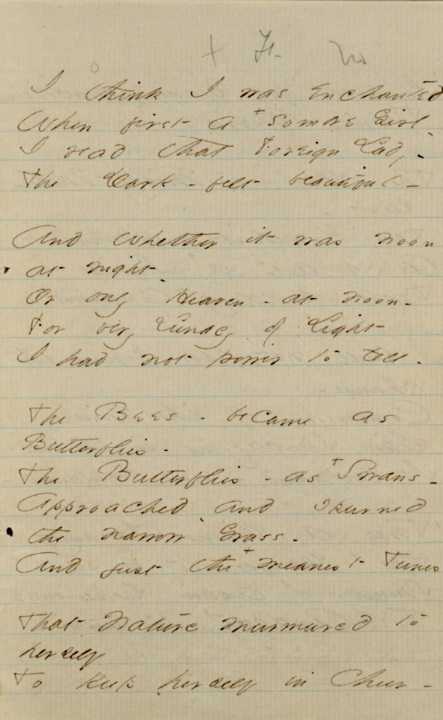 + Fr. No
I think I was Enchanted
When first a + sombre Girl -
I read that Foreign Lady -
The Dark - felt beautiful -
And whether it was noon
at night -
Or only Heaven - at noon -
For very Lunacy of Light
I had not power to tell -
The Bees - became as
Butterflies -
The Butterflies - as + Swans -
Approached - and spurned
the narrow Grass -
And just the + meanest Tunes
That Nature murmured to
herself
To keep herself in Cheer -